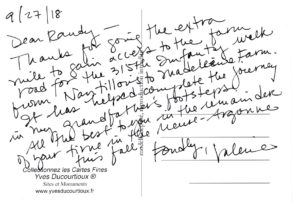 9/27/18
Dear Randy —
Thanks for going the extra
mile to gain access to the farm
road for the 315th Infantry walk
from Nantillois to Madeleine Farm.
It has helped complete the journey
in my grandfather's footsteps.
All the best to you in the remainder
of your time in the Meuse-Argonne
this fall.
Fondly, Valerie
Collectionnez les Cartes Fines
Yves Ducourtioux ®
Sites et Monuments
www.yvesducourtioux.fr